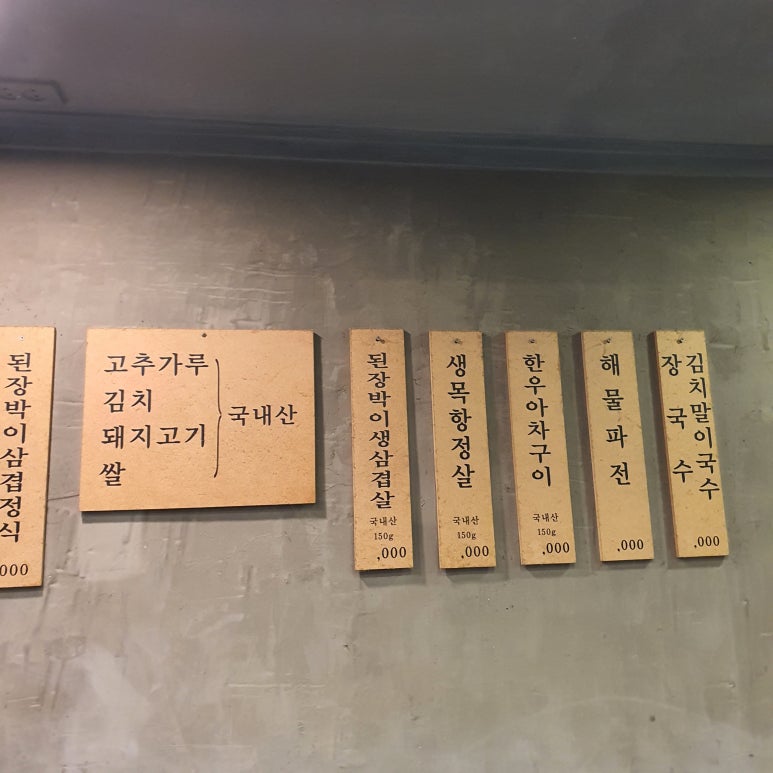 된장박이삼겹정식
000
고추가루
김치
돼지고기
쌀
국내산
된장박이생삼겹살
국내산
150g
,000
생목항정살
국내산
150g
,000
한우아차구이
국내산
150g
,000
해물파전
,000
김치말이국수
장국수
,000